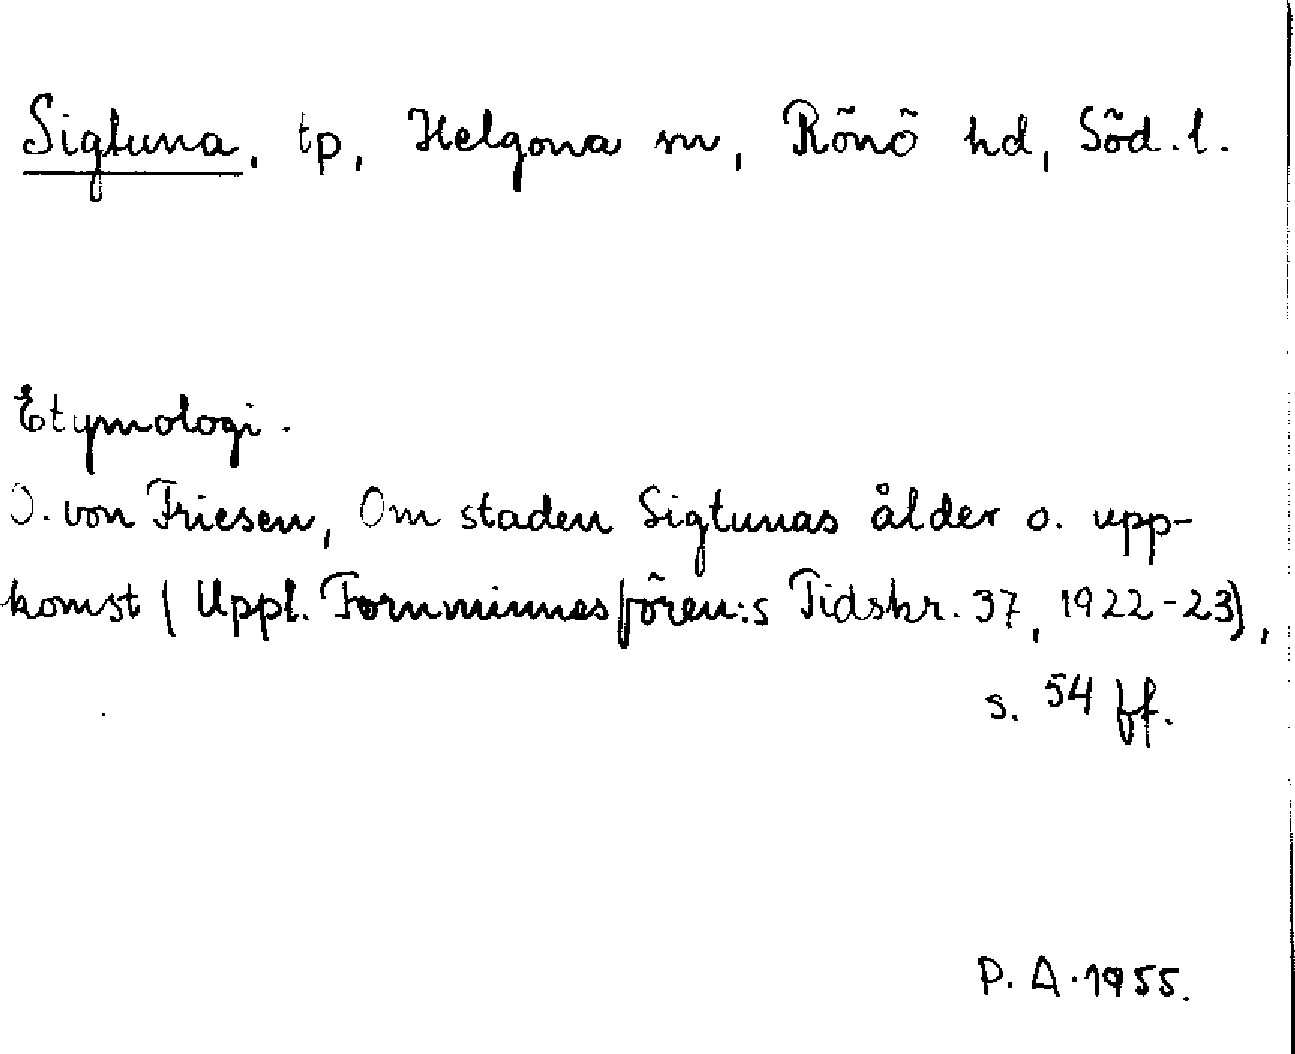 Sigtuna, tp, Helgona sn, Rönö hd, Söd. l.
Etymologi.
O. von Friesen, Om staden Sigtunas ålder o. upp-
komst (Uppl. Fornminnesfören:s Tidskr. 37, 1922-23),
s. 54 ff.
P. A. 1955.